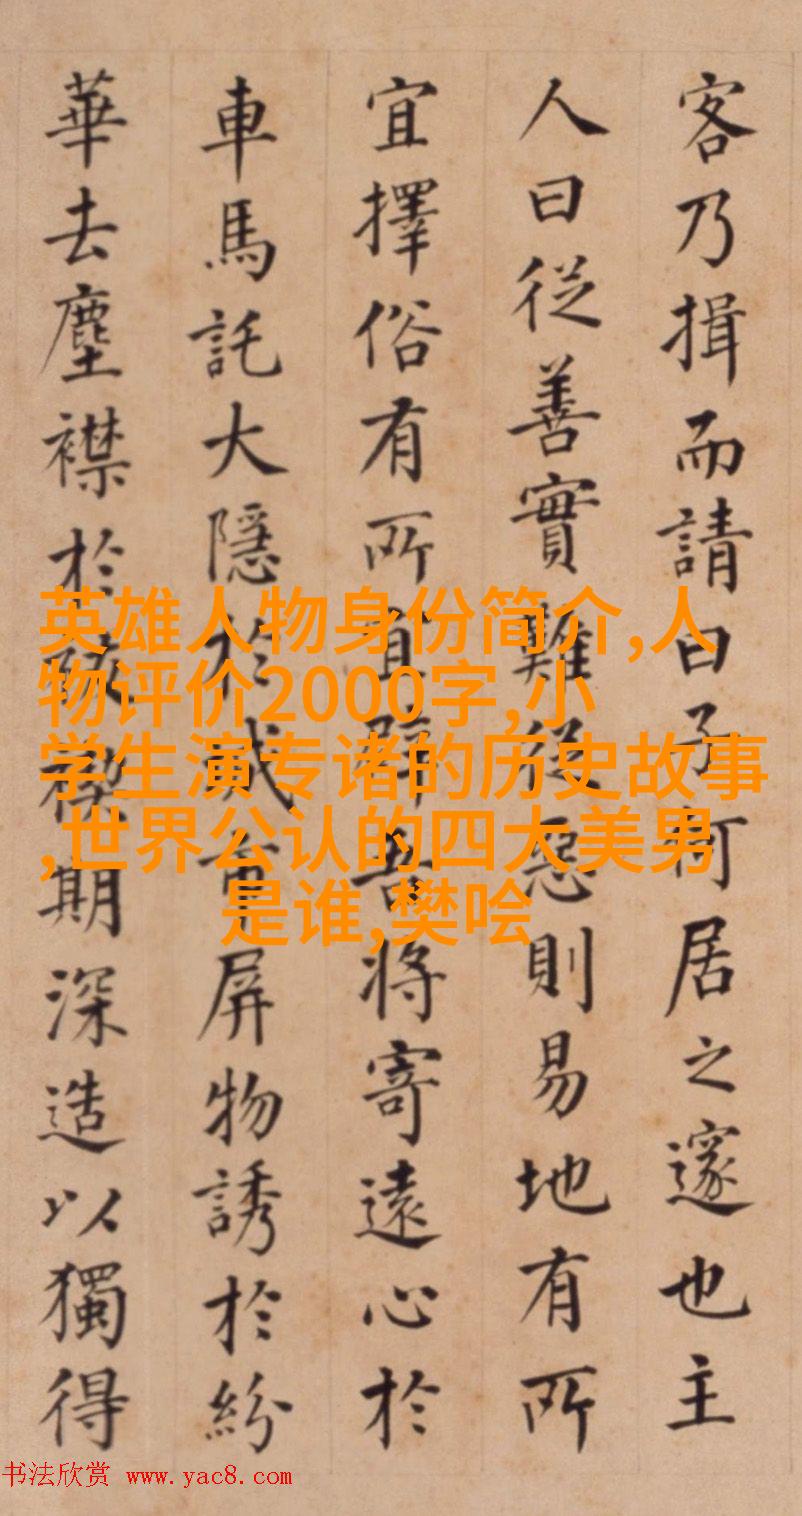 客乃揖而請曰子何居之邃也主
人曰從善實難從惡則易地有所
宜擇俗有所宜辟吾將寄遠心於
車馬託大隱於城市屏物誘於紛
華去塵襟於期深造以獨得
英雄人物身份简介,人
物评价2000字,小
学生演专诸的历史故事
,世界公认的四大美男
是谁,樊哙
书法欣赏 www.yac8.com